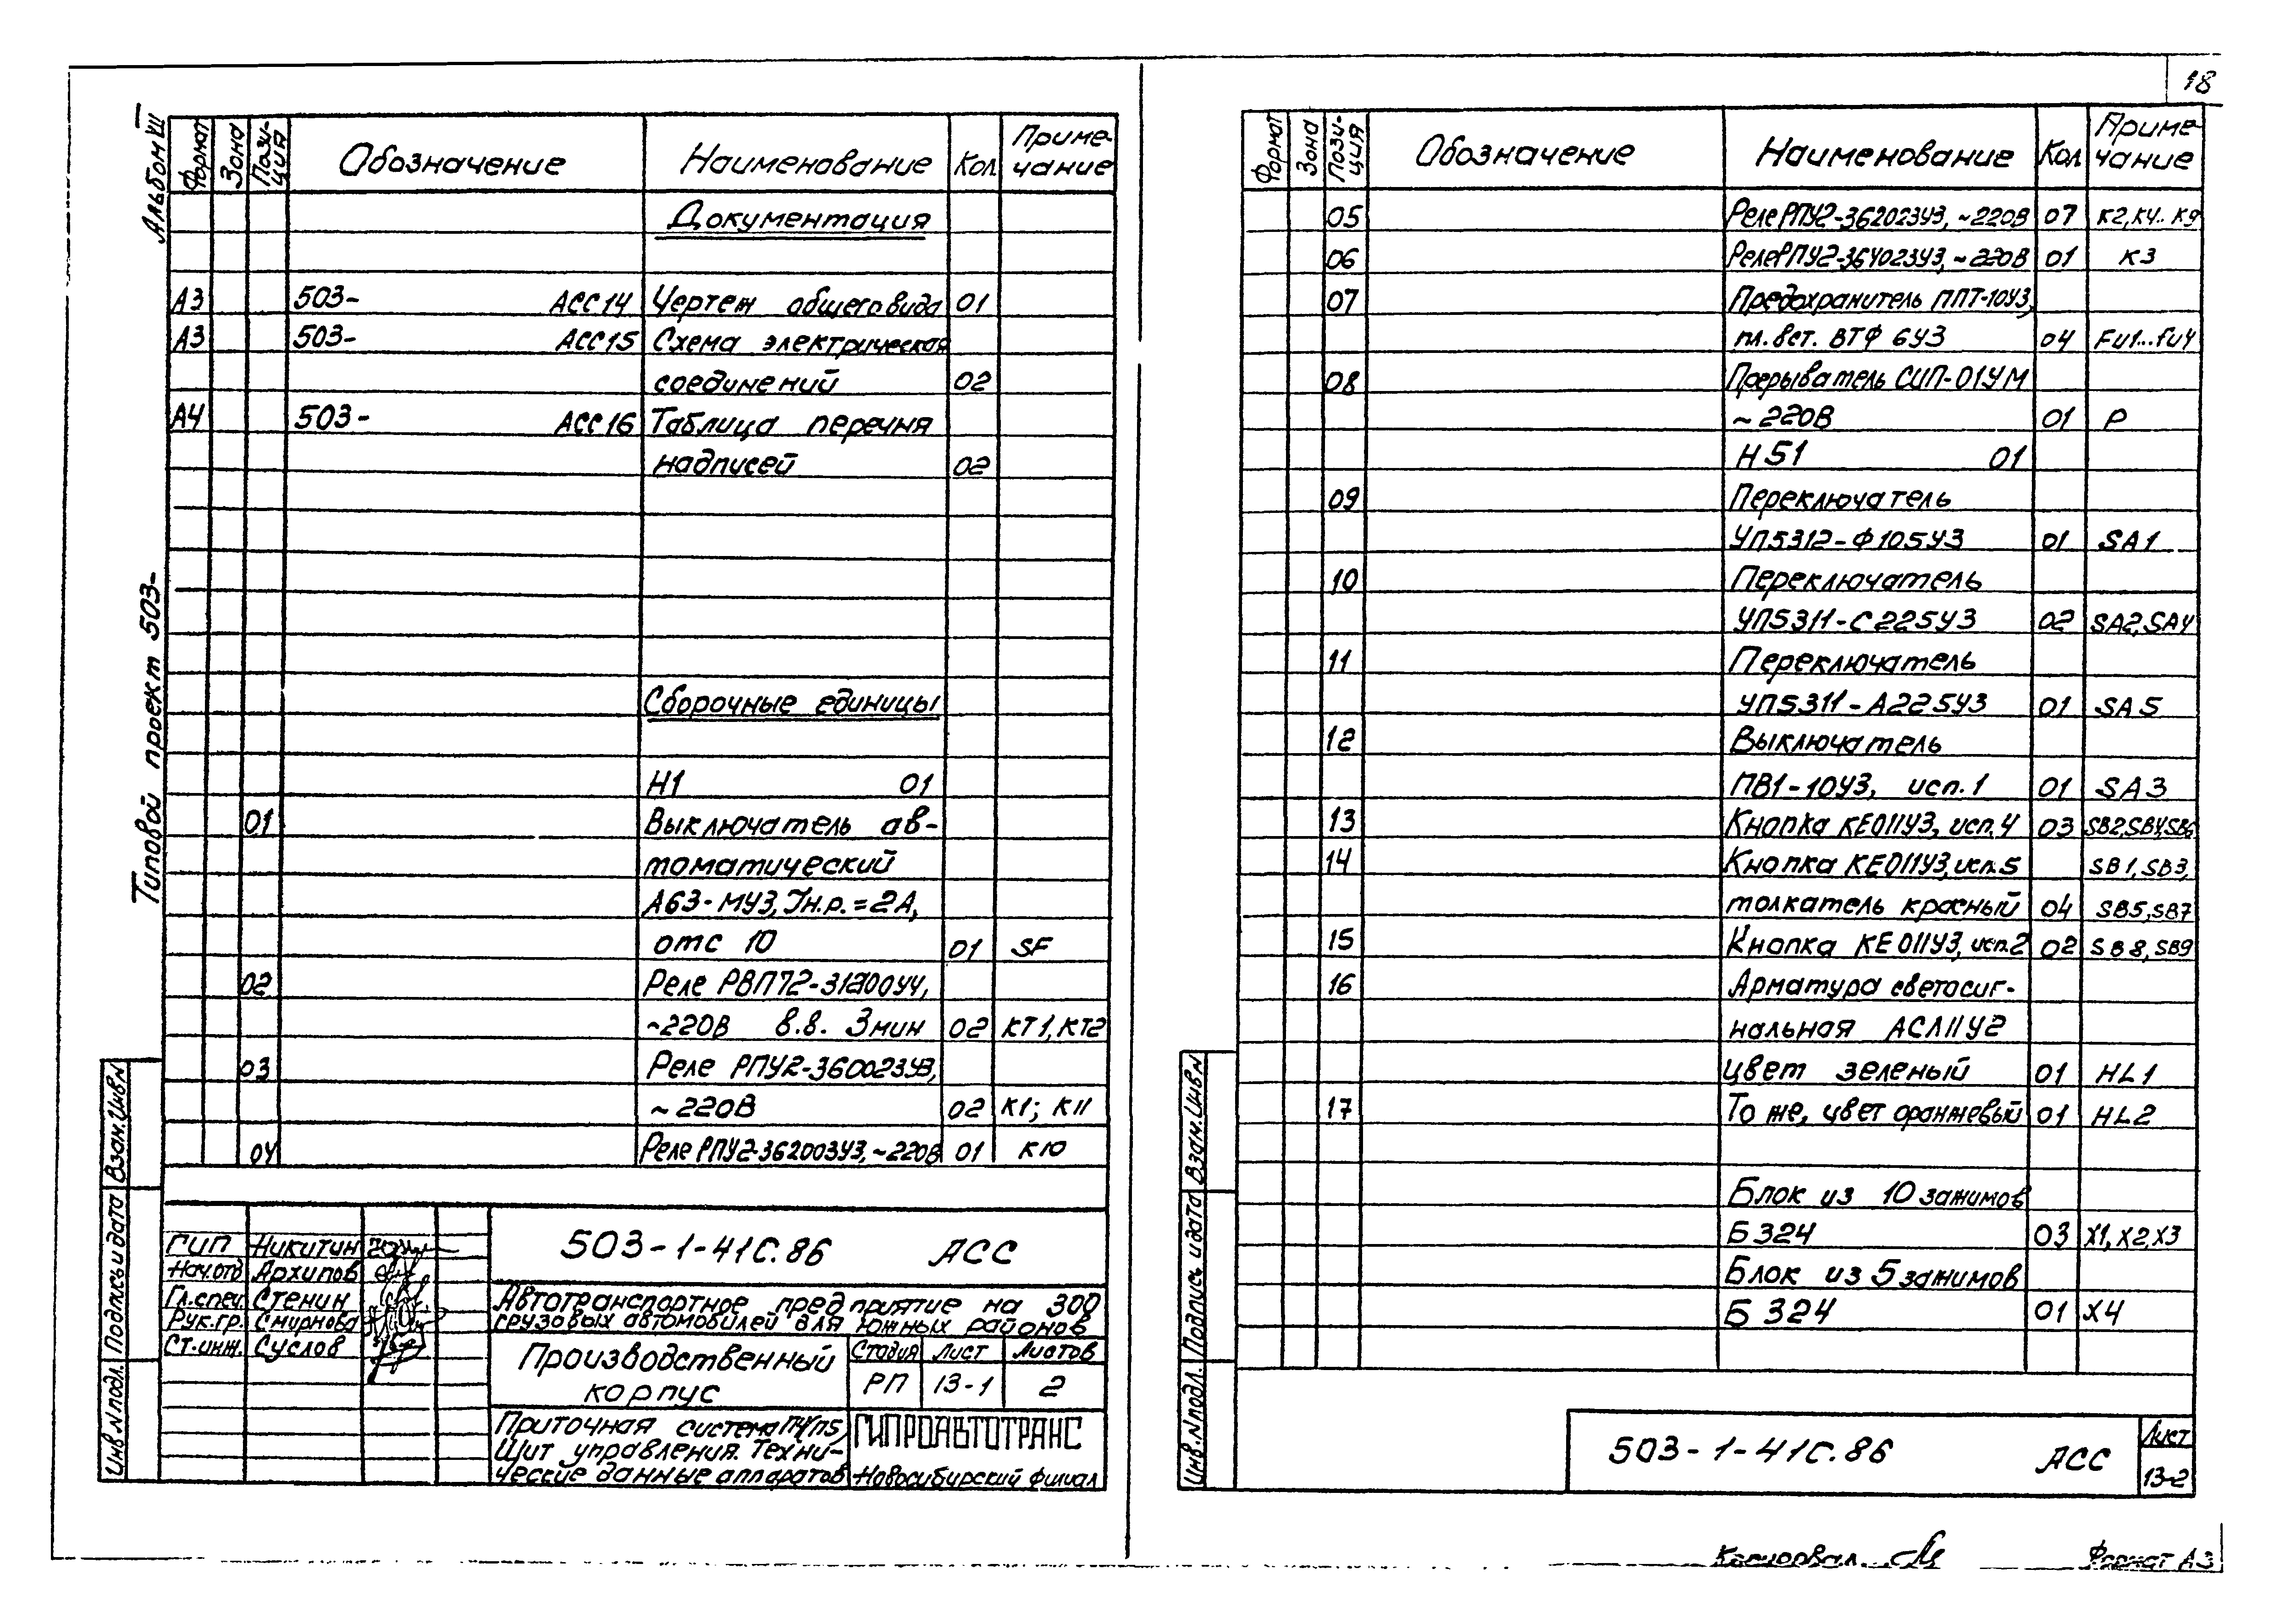 18
Альбом VIII
Типовой проект 503-
Формат Зона Пози-ция Обозначение Наименование Кол Приме-чание
Документация
А3 503- АСС14 Чертеж общего вида 01
А3 503- АСС15 Схема электрическая
соединений 02
А4 503- АСС16 Таблица перечня
надписей 02
Сборочные единицы
Н1 01
01 Выключатель ав-
томатический
А63-МУ3, Iн.р.=2А,
отс 10 01 SF
02 Реле РВП72-3121-00У4,
~220В в.в. 3мин 02 КТ1, КТ2
03 Реле РПУ2-360023У3,
~220В 02 К1; К11
04 Реле РПУ2-362003У3, ~220В 01 К10
Взам. Инв N
Подпись и дата
Инв. N подл.
503-1-41С.86 АСС
ГИП Никитин
Нач.отд Архипов
Гл.спец. Стенин
Рук.гр. Смирнова
Ст.инж. Суслов
Автотранспортное предприятие на 300
грузовых автомобилей для южных районов
Производственный
корпус
Стадия Лист Листов
РП 13-1 2
Приточная система П4, П5,
Щит управления. Техни-
ческие данные аппаратов
ГИПРОАВТОТРАНС
Новосибирский филиал
Формат Зона Пози-ция Обозначение Наименование Кол Приме-чание
05 Реле РПУ2-362023У3, ~220В 07 К2, К4.. К9
06 Реле РПУ2-364023У3, ~220В 01 К3
07 Предохранитель ППТ-10У3,
пл. вст. ВТФ 6У3 04 FU1...FU4
08 Прерыватель СИП-01УМ
~220В 01 Р
Н51 01
09 Переключатель
УП5312-Ф105У3 01 SA1
10 Переключатель
УП5311-С225У3 02 SA2, SA4
11 Переключатель
УП5311-А225У3 01 SA5
12 Выключатель
ПВ1-10У3, исп.1 01 SA3
13 Кнопка КЕ011У3, исп.4 03 SB2, SB4, SB6
14 Кнопка КЕ011У3, исп.5 SB1, SB3,
толкатель красный 04 SB5, SB7
15 Кнопка КЕ011У3, исп.2 02 SB8, SB9
16 Арматура светосиг-
нальная АСЛ11У2
цвет зеленый 01 HL1
17 То же, цвет оранжевый 01 HL2
Блок из 10 зажимов
Б324 03 Х1, Х2, Х3
Блок из 5 зажимов
Б324 01 Х4
Взам. Инв N
Подпись и дата
Инв. N подл.
503-1-41С.86 АСС
Лист
13-2
Копировал
Формат А3